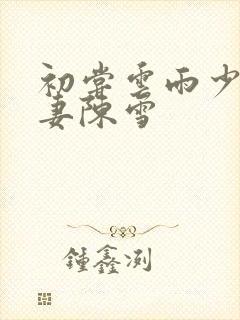 初尝云雨少
妻陈雪
鍾鑫浏